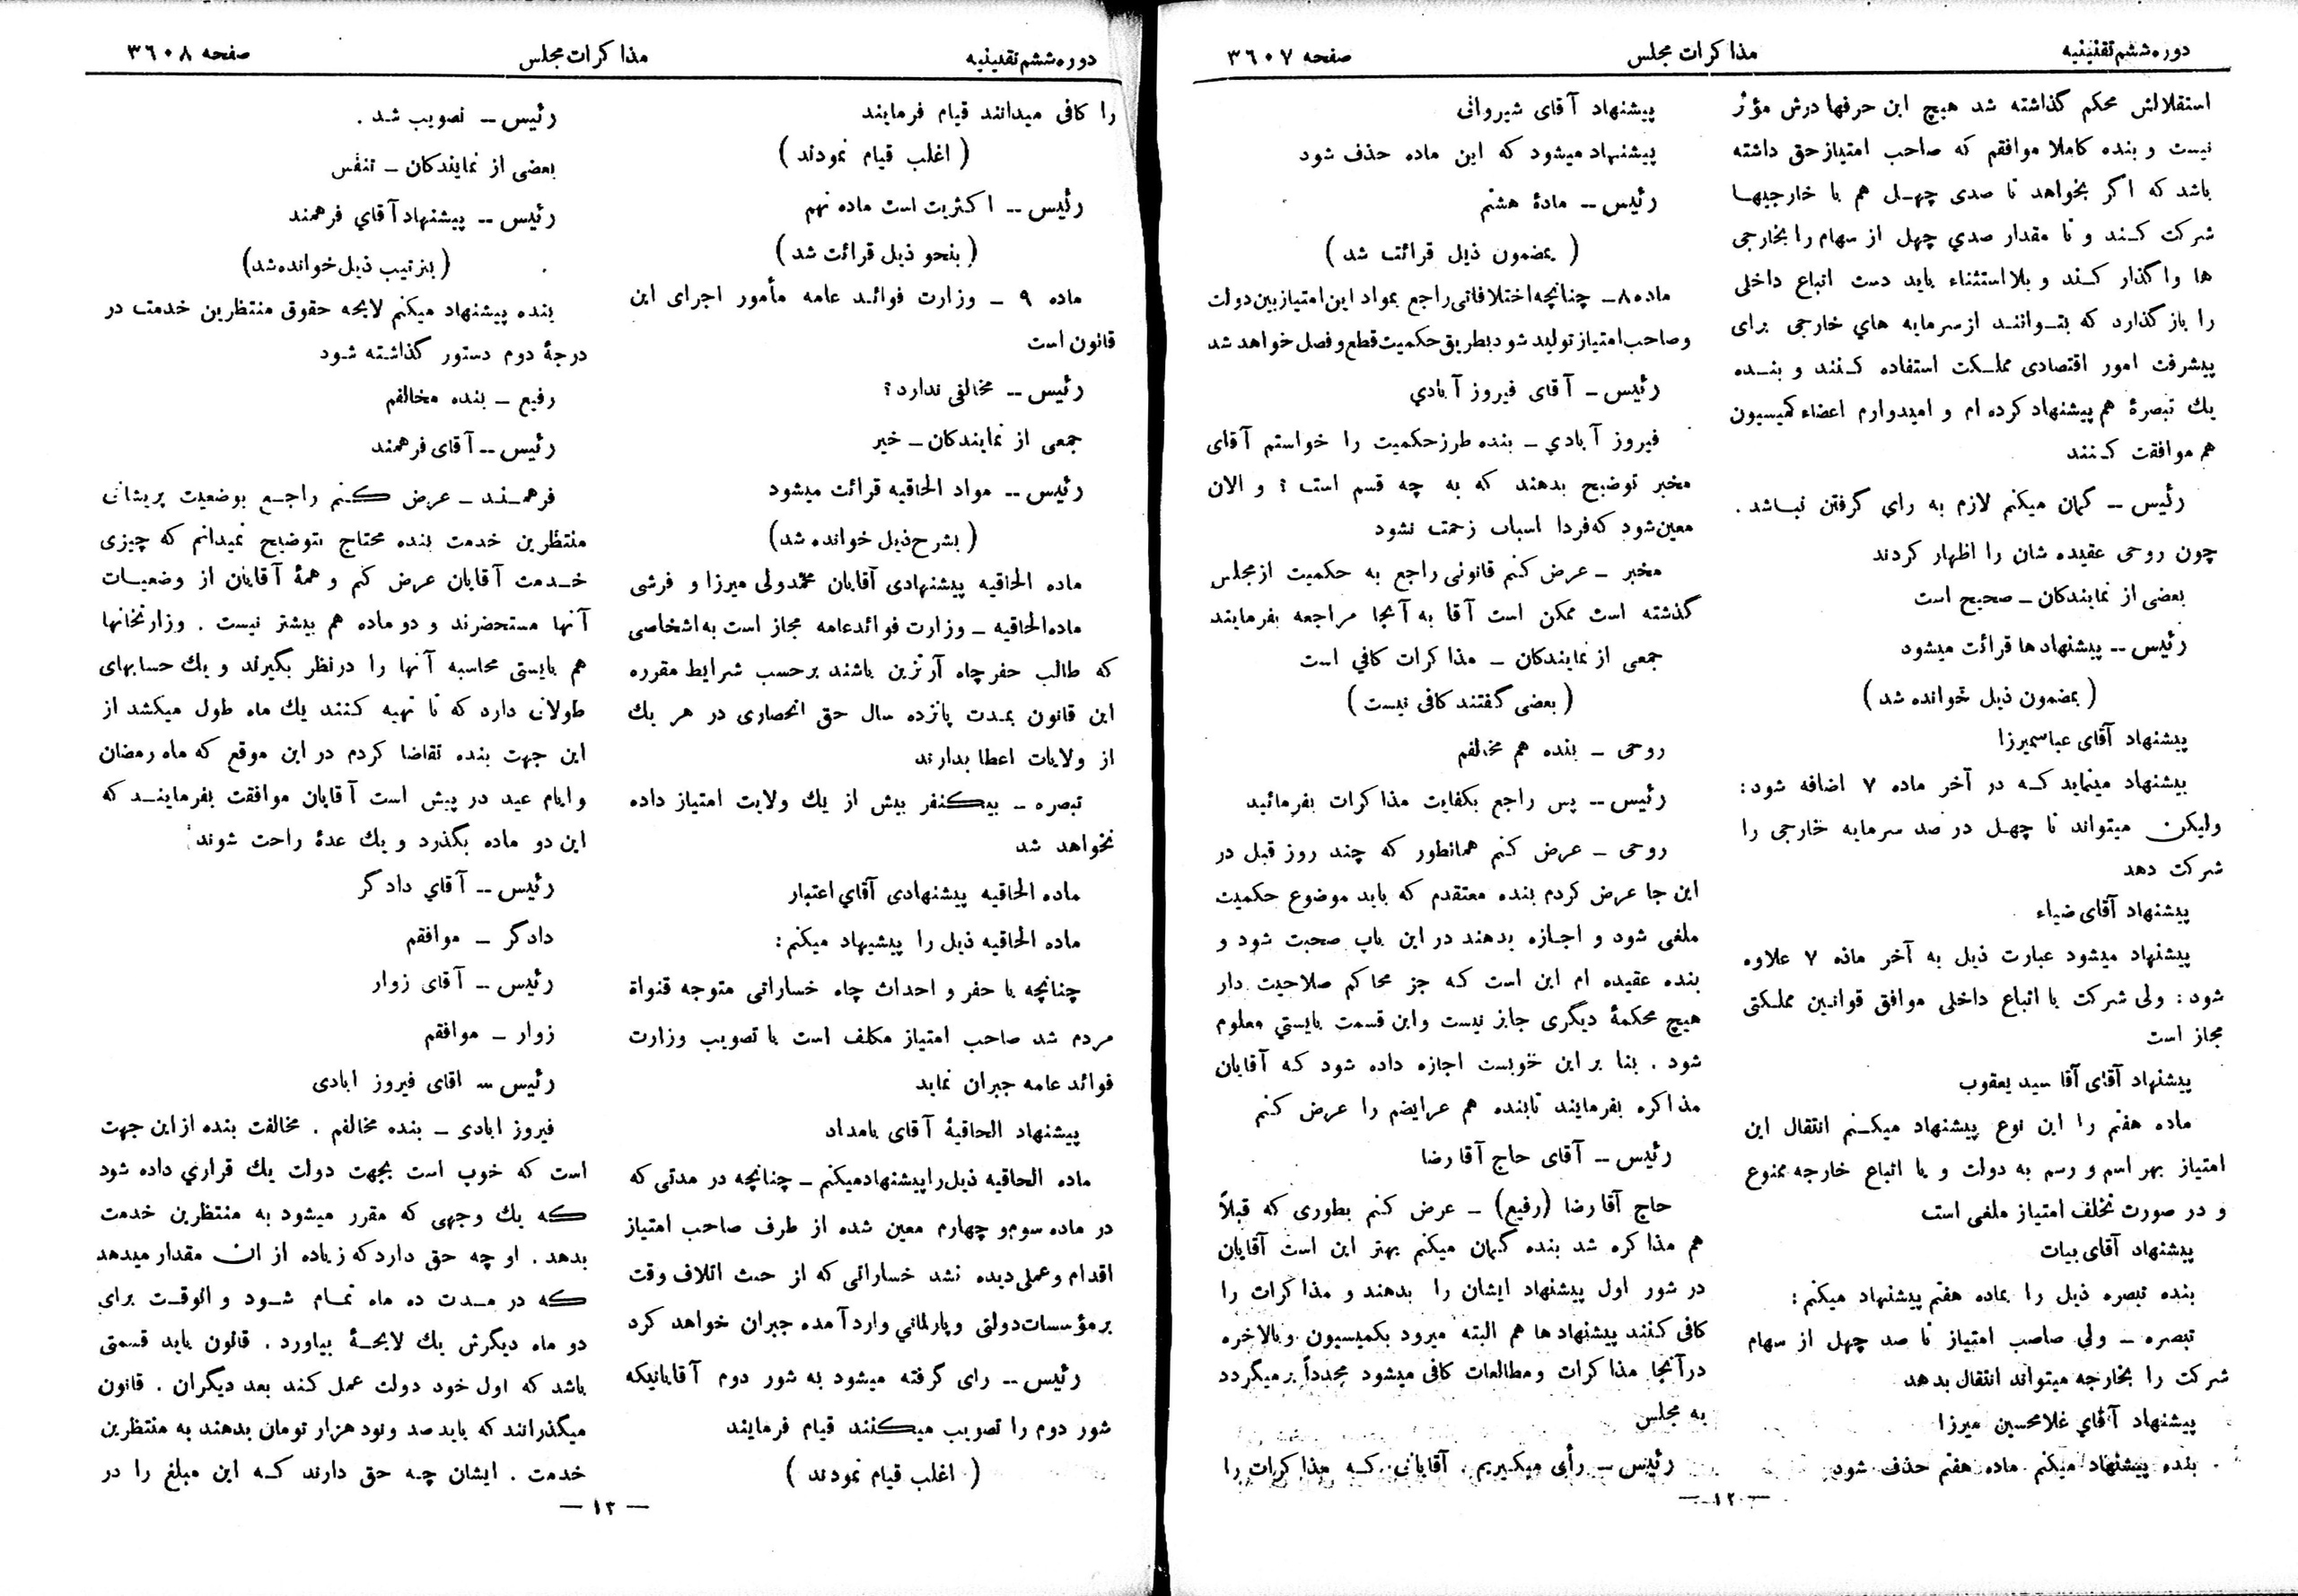 دوره ششم تقنینیه
مذاکرات مجلس
صفحه ۳۶۰۷
استقلالش محکم گذاشته شد هیچ این حرفها درش مؤثر
نیست و بنده کاملا موافقم که صاحب امتیاز حق داشته
باشد که اگر بخواهد تا صدی چهل هم با خارجیها
شرکت کند و تا مقدار صدي چهل از سهام را بخارجی
ها واگذار کند و بلااستثناء باید دست اتباع داخلی
را باز گذارد که بتوانند از سرمایه هاي خارجی برای
پیشرفت امور اقتصادی مملکت استفاده کنند و بنده
یك تبصرهٔ هم پیشنهاد کرده ام و امیدوارم اعضاء کمیسیون
هم موافقت کنند
رئیس -- گمان میکنم لازم به راي گرفتن نباشد .
چون روحی عقیده شان را اظهار کردند
بعضی از نمایندکان - صحیح است
رئیس -- پیشنهادها قرائت میشود
( بمضمون ذیل خوانده شد )
پیشنهاد آقای عباسمیرزا
پیشنهاد مینماید که در آخر ماده ۷ اضافه شود :
ولیکن میتواند تا چهل در صد سرمایه خارجی را
شرکت دهد
پیشنهاد آقای ضیاء
پیشنهاد میشود عبارت ذیل به آخر ماده ۷ علاوه
شود : ولی شرکت با اتباع داخلی موافق قوانین مملکتی
مجاز است
پیشنهاد آقای آقا سید یعقوب
ماده هفتم را این نوع پیشنهاد میکنم انتقال این
امتیاز بهر اسم و رسم به دولت و یا اتباع خارجه ممنوع
و در صورت تخلف امتیاز ملغی است
پیشنهاد آقای بیات
بنده تبصره ذیل را بماده هفتم پیشنهاد میکنم :
تبصره - ولی صاحب امتیاز تا صد چهل از سهام
شرکت را بخارجه میتواند انتقال بدهد
پیشنهاد آقاي غلامحسین میرزا
بنده پیشنهاد میکنم ماده هفتم حذف شود
پیشنهاد آقای شیروانی
پیشنهاد میشود که این ماده حذف شود
رئیس - مادهٔ هشتم
( بمضمون ذیل قرائت شد )
ماده ۸ - چنانچه اختلافاتی راجع بمواد این امتیاز بین دولت
و صاحب امتیاز تولید شود بطریق حکمیت قطع و فصل خواهد شد
رئیس - آقای فیروز آبادي
فیروز آبادي - بنده طرز حکمیت را خواستم آقای
مخبر توضیح بدهند که به چه قسم است ؟ و الان
معین شود که فردا اسباب زحمت نشود
مخبر - عرض کنم قانونی راجع به حکمیت از مجلس
گذشته است ممکن است آقا به آنجا مراجعه بفرمایند
جمعی از نمایندکان - مذاکرات کافي است
( بعضی گفتند کافی نیست )
روحی - بنده هم مخالفم
رئیس -- پس راجع بکفایت مذاکرات بفرمائید
روحی - عرض کنم همانطور که چند روز قبل در
این جا عرض کردم بنده معتقدم که باید موضوع حکمیت
ملغی شود و اجازه بدهند در این باب صحبت شود و
بنده عقیده ام این است که جز محاکم صلاحیت دار
هیچ محکمهٔ دیگری جایز نیست و این قسمت بایستي معلوم
شود . بنا بر این خوبست اجازه داده شود که آقایان
مذاکره بفرمایند تا بنده هم عرایضم را عرض کنم
رئیس -- آقای حاج آقا رضا
حاج آقا رضا (رفیع) - عرض کنم بطوری که قبلاً
هم مذاکره شد بنده گمان میکنم بهتر این است آقایان
در شور اول پیشنهاد ایشان را بدهند و مذاکرات را
کافی کنند پیشنهادها هم البته میرود بکمیسیون و بالاخره
در آنجا مذاکرات و مطالعات کافی میشود مجدداً برمیگردد
به مجلس
رئیس - رأی میگیریم آقایانی که مذاکرات را
— ۱۲ —
دوره ششم تقنینیه
مذاکرات مجلس
صفحه ۳۶۰۸
را کافی میدانند قیام فرمایند
( اغلب قیام نمودند )
رئیس -- اکثریت است ماده نهم
( بنحو ذیل قرائت شد )
ماده ۹ - وزارت فوائد عامه مأمور اجرای این
قانون است
رئیس -- مخالفی ندارد ؟
جمعی از نمایندکان - خیر
رئیس -- مواد الحاقیه قرائت میشود
( بشرح ذیل خوانده شد )
ماده الحاقیه پیشنهادی آقایان محمدولی میرزا و فرشی
ماده الحاقیه - وزارت فوائد عامه مجاز است به اشخاصی
که طالب حفر چاه آرتزین باشند برحسب شرایط مقرره
این قانون بمدت پانزده سال حق انحصاری در هر یك
از ولایات اعطا بدارند
تبصره - بیکنفر بیش از یك ولایت امتیاز داده
نخواهد شد
ماده الحاقیه پیشنهادی آقاي اعتبار
ماده الحاقیه ذیل را پیشنهاد میکنم :
چنانچه با حفر و احداث چاه خساراتی متوجه قنواة
مردم شد صاحب امتیاز مکلف است با تصویب وزارت
فوائد عامه جبران نماید
پیشنهاد الحاقیهٔ آقای بامداد
ماده الحاقیه ذیل را پیشنهاد میکنم - چنانچه در مدتی که
در ماده سوم و چهارم معین شده از طرف صاحب امتیاز
اقدام و عملی دیده نشد خساراتی که از حیث اتلاف وقت
بر مؤسسات دولتی و پارلمانی وارد آمده جبران خواهد کرد
رئیس -- رای گرفته میشود به شور دوم آقایانیکه
شور دوم را تصویب میکنند قیام فرمایند
( اغلب قیام نمودند )
رئیس - تصویب شد .
بعضی از نمایندکان - تنفس
رئیس -- پیشنهاد آقاي فرهمند
( بترتیب ذیل خوانده شد )
بنده پیشنهاد میکنم لایحه حقوق منتظرین خدمت در
درجهٔ دوم دستور گذاشته شود
رفیع - بنده مخالفم
رئیس -- آقای فرهمند
فرهمند - عرض کنم راجع بوضعیت پریشانی
منتظرین خدمت بنده محتاج بتوضیح نمیدانم که چیزی
خدمت آقایان عرض کنم و همهٔ آقایان از وضعیات
آنها مستحضرند و دو ماده هم بیشتر نیست . وزارتخانها
هم بایستی محاسبه آنها را در نظر بگیرند و یك حسابهای
طولانی دارد که تا تهیه کنند یك ماه طول میکشد از
این جهت بنده تقاضا کردم در این موقع که ماه رمضان
و ایام عید در پیش است آقایان موافقت بفرمایند که
این دو ماده بگذرد و یك عدهٔ راحت شوند
رئیس -- آقاي دادگر
دادگر - موافقم
رئیس -- آقای زوار
زوار - موافقم
رئیس -- اقای فیروز ابادی
فیروز ابادی - بنده مخالفم . مخالفت بنده از این جهت
است که خوب است بجهت دولت یك قراري داده شود
که یك وجهی که مقرر میشود به منتظرین خدمت
بدهد . او چه حق دارد که زیاده از ان مقدار میدهد
که در مدت ده ماه تمام شود و انوقت براي
دو ماه دیگرش یك لایحهٔ بیاورد . قانون باید قسمتی
باشد که اول خود دولت عمل کند بعد دیگران . قانون
میگذرانند که باید صد و نود هزار تومان بدهند به منتظرین
خدمت . ایشان چه حق دارند که این مبلغ را در
— ۱۳ —